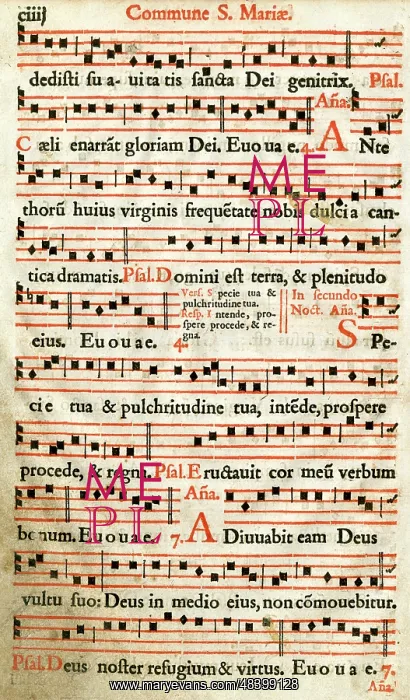 ciiij Commune S. Mariæ.
dedisti su a- ui ta tis sancta Dei genitrix. Psal.
Aña.
C æli enarrāt gloriam Dei. Eu o u a e. 4. A Nte
thorū huius virginis frequētate nobis dulcia can-
tica dramatis. Psal. D omini est terra, & plenitudo
Vers. S pecie tua &
pulchritudine tua.
Resp. I ntende, pro-
spere procede, & re-
gna.
In secundo
Noct. Aña.
eius. Eu o u a e. 4. S Pe-
cie tua & pulchritudine tua, intēde, prospere
procede, & regna. Psal. E ructauit cor meū verbum
Aña.
bonum. Eu o u a e. 7. A Diuuabit eam Deus
vultu suo: Deus in medio eius, non cōmouebitur.
Psal. D eus noster refugium & virtus. Eu o u a e. 7.
Aña.
ME
PL
ME
PL
www.maryevans.com/48999128